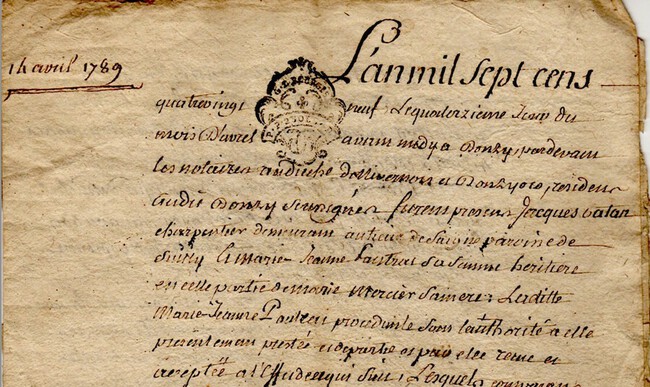 14 avril 1789
L'an mil sept cens
quatrevingt neuf Le quatorzieme Jour du
mois D'avril avant midy a Donzy, pardevant
Les notaires au duché de Nivernois a Donzyois, residens
audit Donzy soussignés furent presens Jacques
charpentier demeurant paroisse de
Suilly & marie Jeanne sa femme heritiere
en celle partie de marie Mercier sa mere; Laditte
Marie Jeanne procedante sous l'authorité a elle
presentement prestée par elle recue et
acceptée a l'Effet de ce qui suit; Lesquels